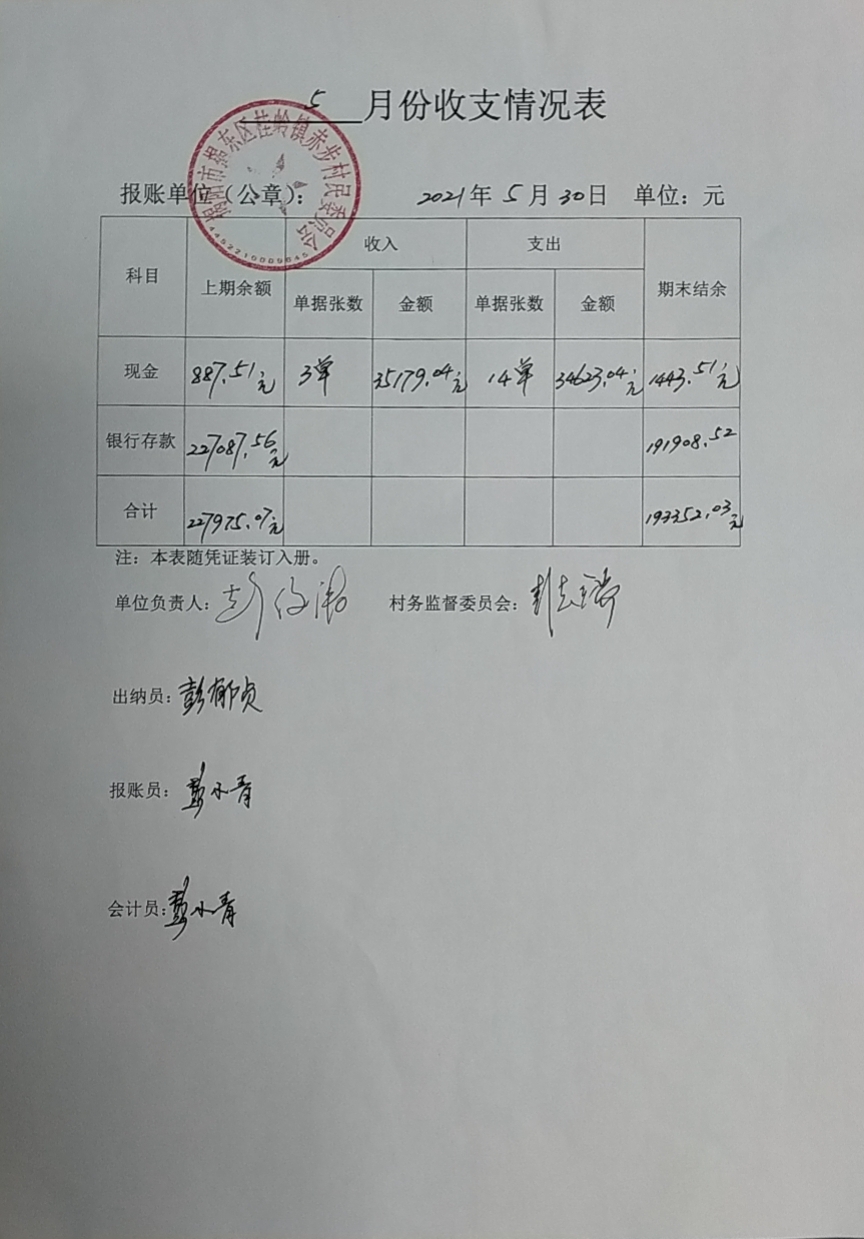 5 月份收支情况表
揭阳市揭东区桂岭镇赤步村民委员会
报账单位（公章）： 2021年 5 月 30日 单位：元
科目 上期余额 收入 支出 期末结余
单据张数 金额 单据张数 金额
现金 887.51元 3单 35179.04元 14单 34623.04元 1443.51元
银行存款 227087.56元 191908.52
合计 227975.07元 193352.03元
注：本表随凭证装订入册。
单位负责人： 村务监督委员会：
出纳员：彭郁贞
报账员：彭小青
会计员：彭小青